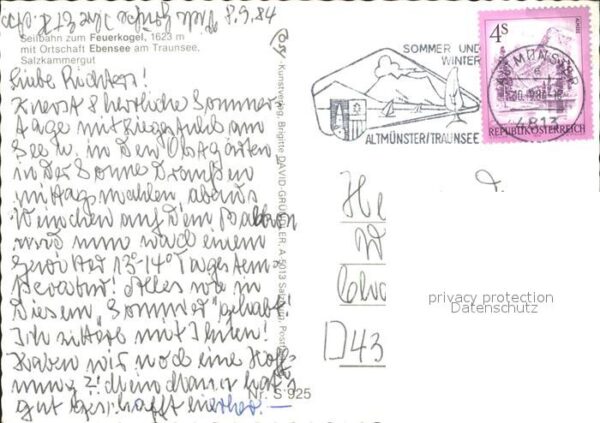 8.9.84
Seilbahn zum Feuerkogel, 1623 m
mit Ortschaft Ebensee am Traunsee,
Salzkammergut
Liebe Richters!
Zuerst 8 herrliche Sommer-
tage mit Liegestuhl am
See u. in den Obstgärten
in der Sonne Draußen
mittagmahlen, abends
Weinchen auf dem Balkon
und nun nach einem
Gewitter 13°-14° Tagestem-
peratur! Alles wie in
diesem "Sommer" gehabt!
Ich zittere mit Ihnen!
Haben wir noch eine Hoff-
nung?! Mein Mann hat's
gut geschafft hierher. —
Kunstverlag Brigitte DAVID-GRUNDLER, A 5013 Salzburg, Postfach
Nr. S 925
SOMMER UND
WINTER
ALTMÜNSTER/TRAUNSEE
ALTMÜNSTER
4813
4S
ALMSEE
REPUBLIK ÖSTERREICH
He
D43
privacy protection
Datenschutz